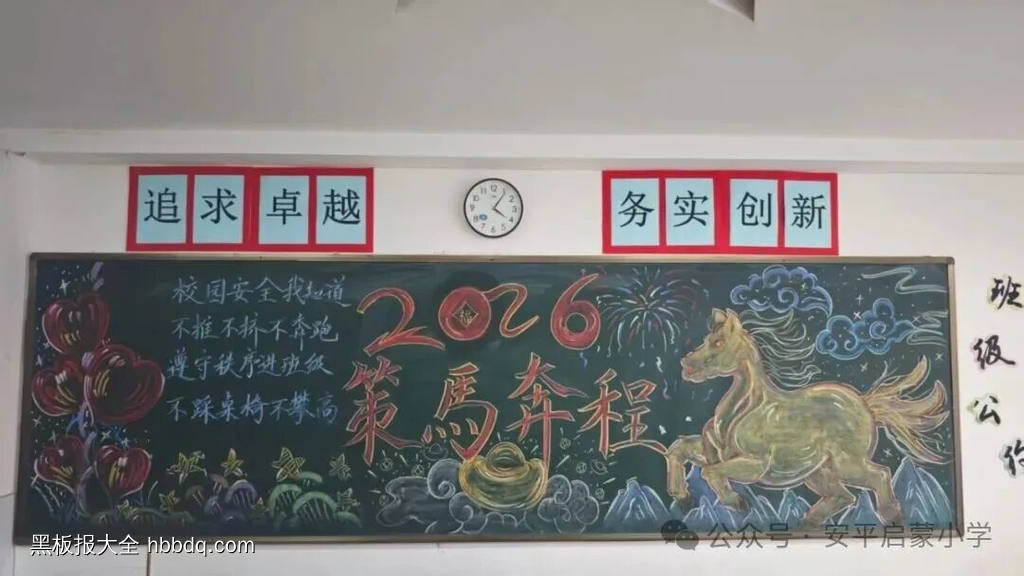 追求卓越
务实创新
校园安全我知道
不推不挤不奔跑
遵守秩序进班级
不踩桌椅不攀高
2026
策馬奔程
班级公约
黑板报大全 hbbdq.com
公众号·安平启蒙小学